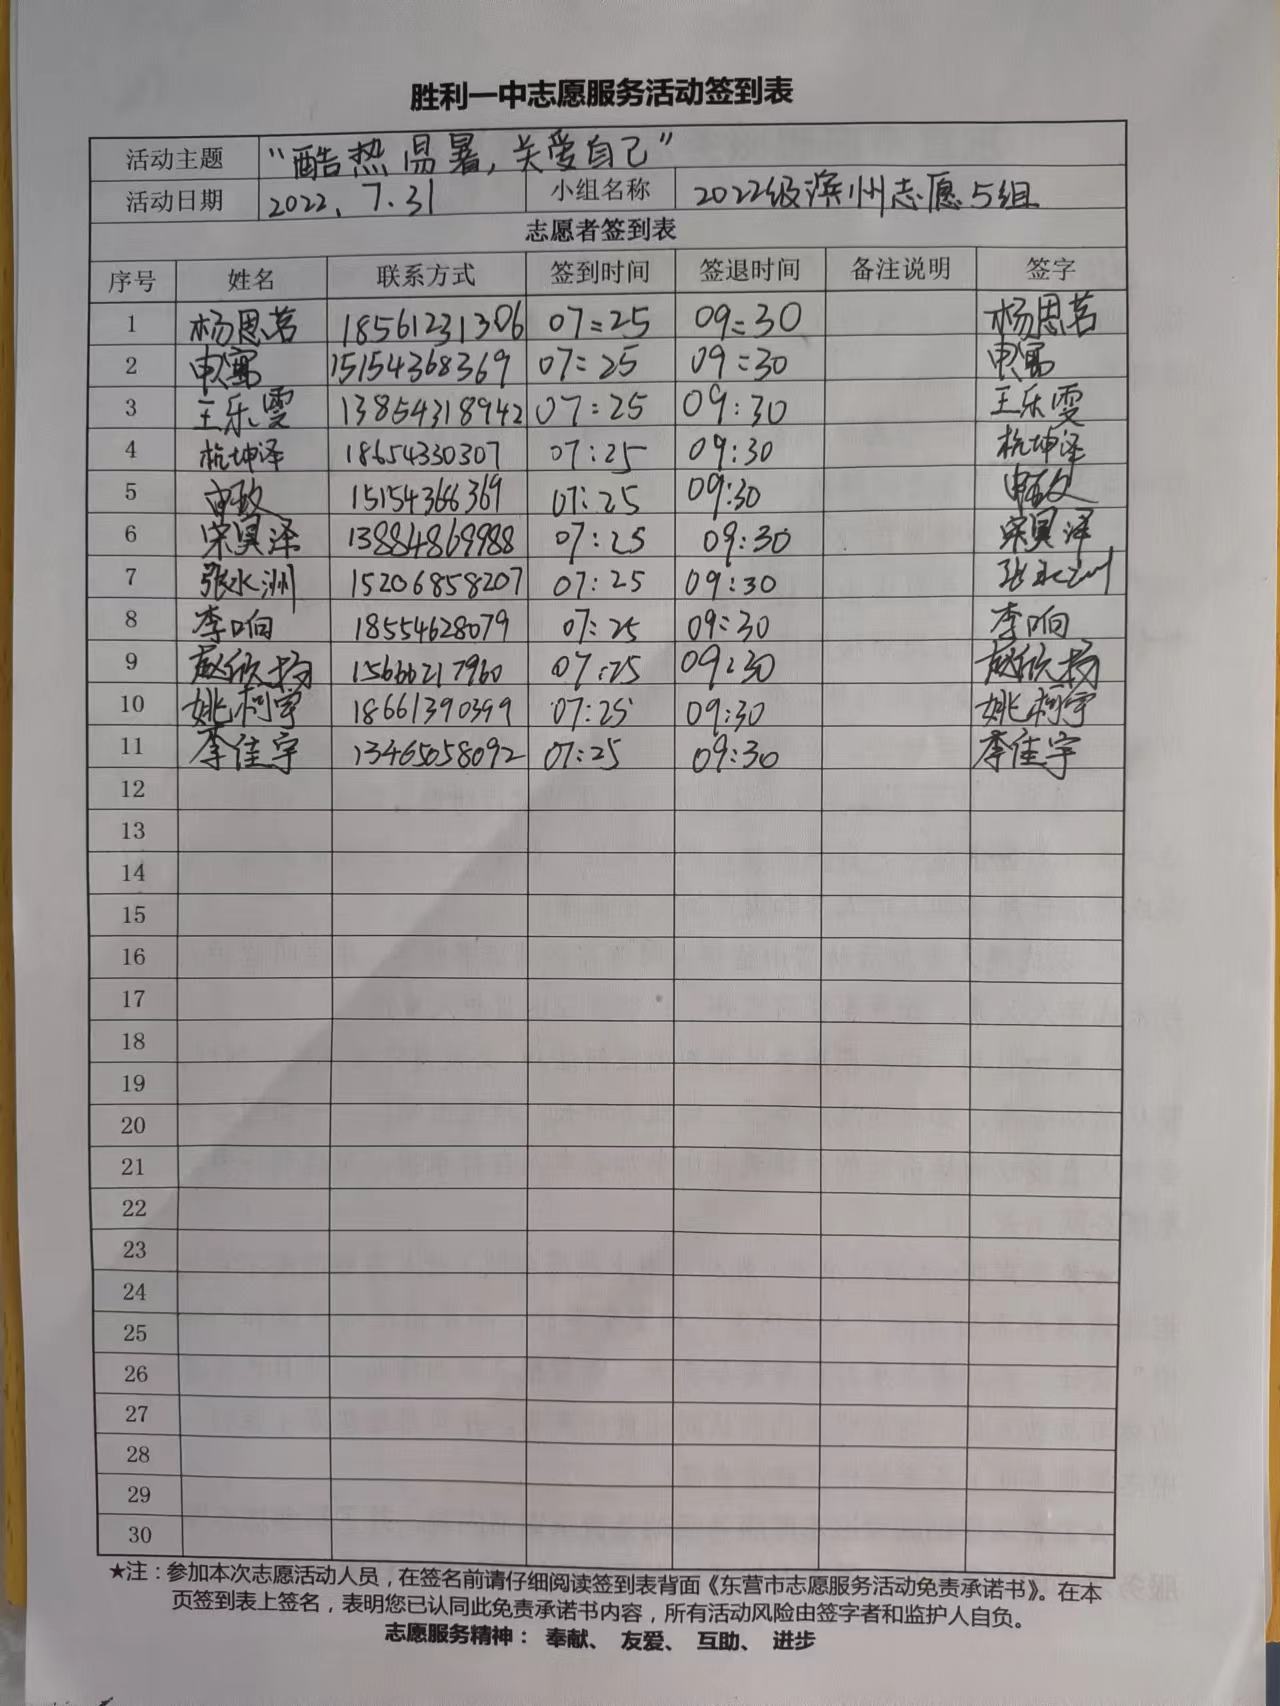 胜利一中志愿服务活动签到表
活动主题 “酷热易暑，关爱自己”
活动日期 2022、7.31 小组名称 2022级滨州志愿5组
志愿者签到表
序号 姓名 联系方式 签到时间 签退时间 备注说明 签字
1 杨思茗 18561231306 07:25 09:30 杨思茗
2 15154368369 07:25 09:30
3 王乐雯 13854318942 07:25 09:30 王乐雯
4 杭坤泽 18654330307 07:25 09:30 杭坤泽
5 15154366369 07:25 09:30
6 宋昊泽 13884869988 07:25 09:30 宋昊泽
7 张水洲 15206858207 07:25 09:30
8 李响 18554628079 07:25 09:30 李响
9 赵欣扬 15666217960 07:25 09:30 赵欣扬
10 姚柯宇 18661390399 07:25 09:30 姚柯宇
11 李佳宇 13465058092 07:25 09:30 李佳宇
12
13
14
15
16
17
18
19
20
21
22
23
24
25
26
27
28
29
30
★注：参加本次志愿活动人员，在签名前请仔细阅读签到表背面《东营市志愿服务活动免责承诺书》。在本
页签到表上签名，表明您已认同此免责承诺书内容，所有活动风险由签字者和监护人自负。
志愿服务精神： 奉献、 友爱、 互助、 进步